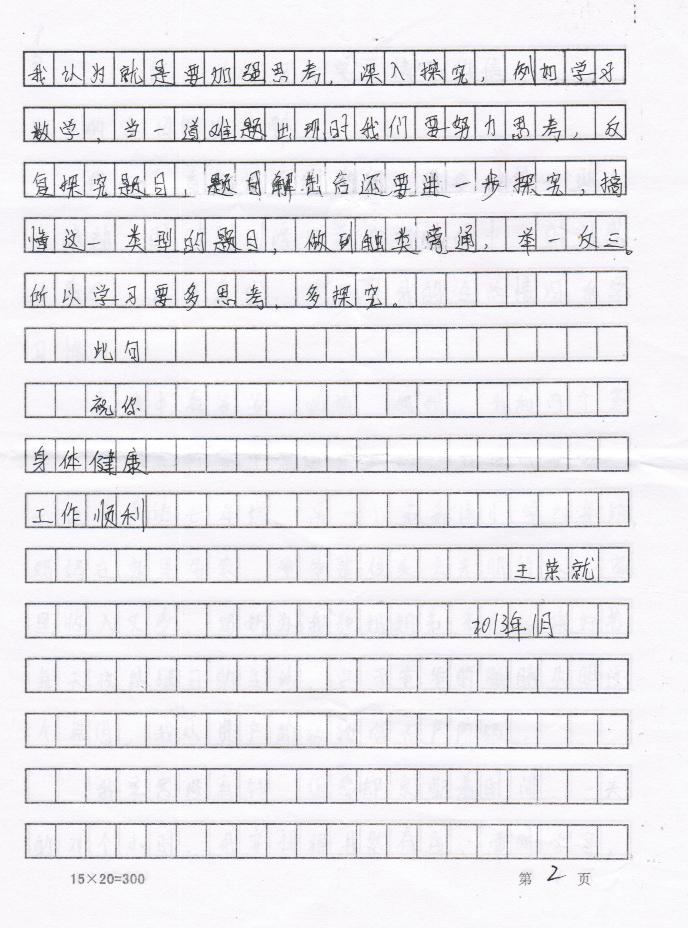 我认为就是要加强思考，深入探究，例如学习
数学，当一道难题出现时我们要努力思考，反
复探究题目，题目解出后还要进一步探究，搞
懂这一类型的题目，做到触类旁通，举一反三。
所以学习要多思考，多探究。
此句
祝你
身体健康
工作顺利
王荣就
2013年1月
15×20=300
第 2 页